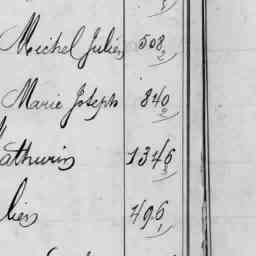 Michel Julien 508
Marie Joseph 840
Mathurin 1346
lien 496